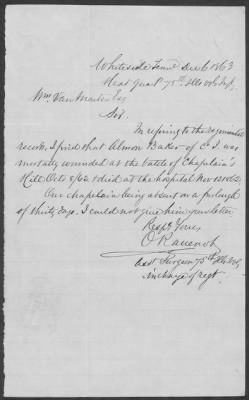 Whiteside Tenn. Dec 6 1863
Head Quar 75th Ills vols Inf,
Wm Van Marter Esq
Sir.
In refering to the regimental
records, I find that Almon Baker of Co I. was
mortally wounded at the battle of Chapelain's
Hill Oct 8/62 & died at the hospital Nov 12 1862.
Our chapelain being absent on a furlough
of thirty days, I could not give him your letter
Respt Yours
O
Asst Surgeon 75th Ills Vols,
in charge of regt.